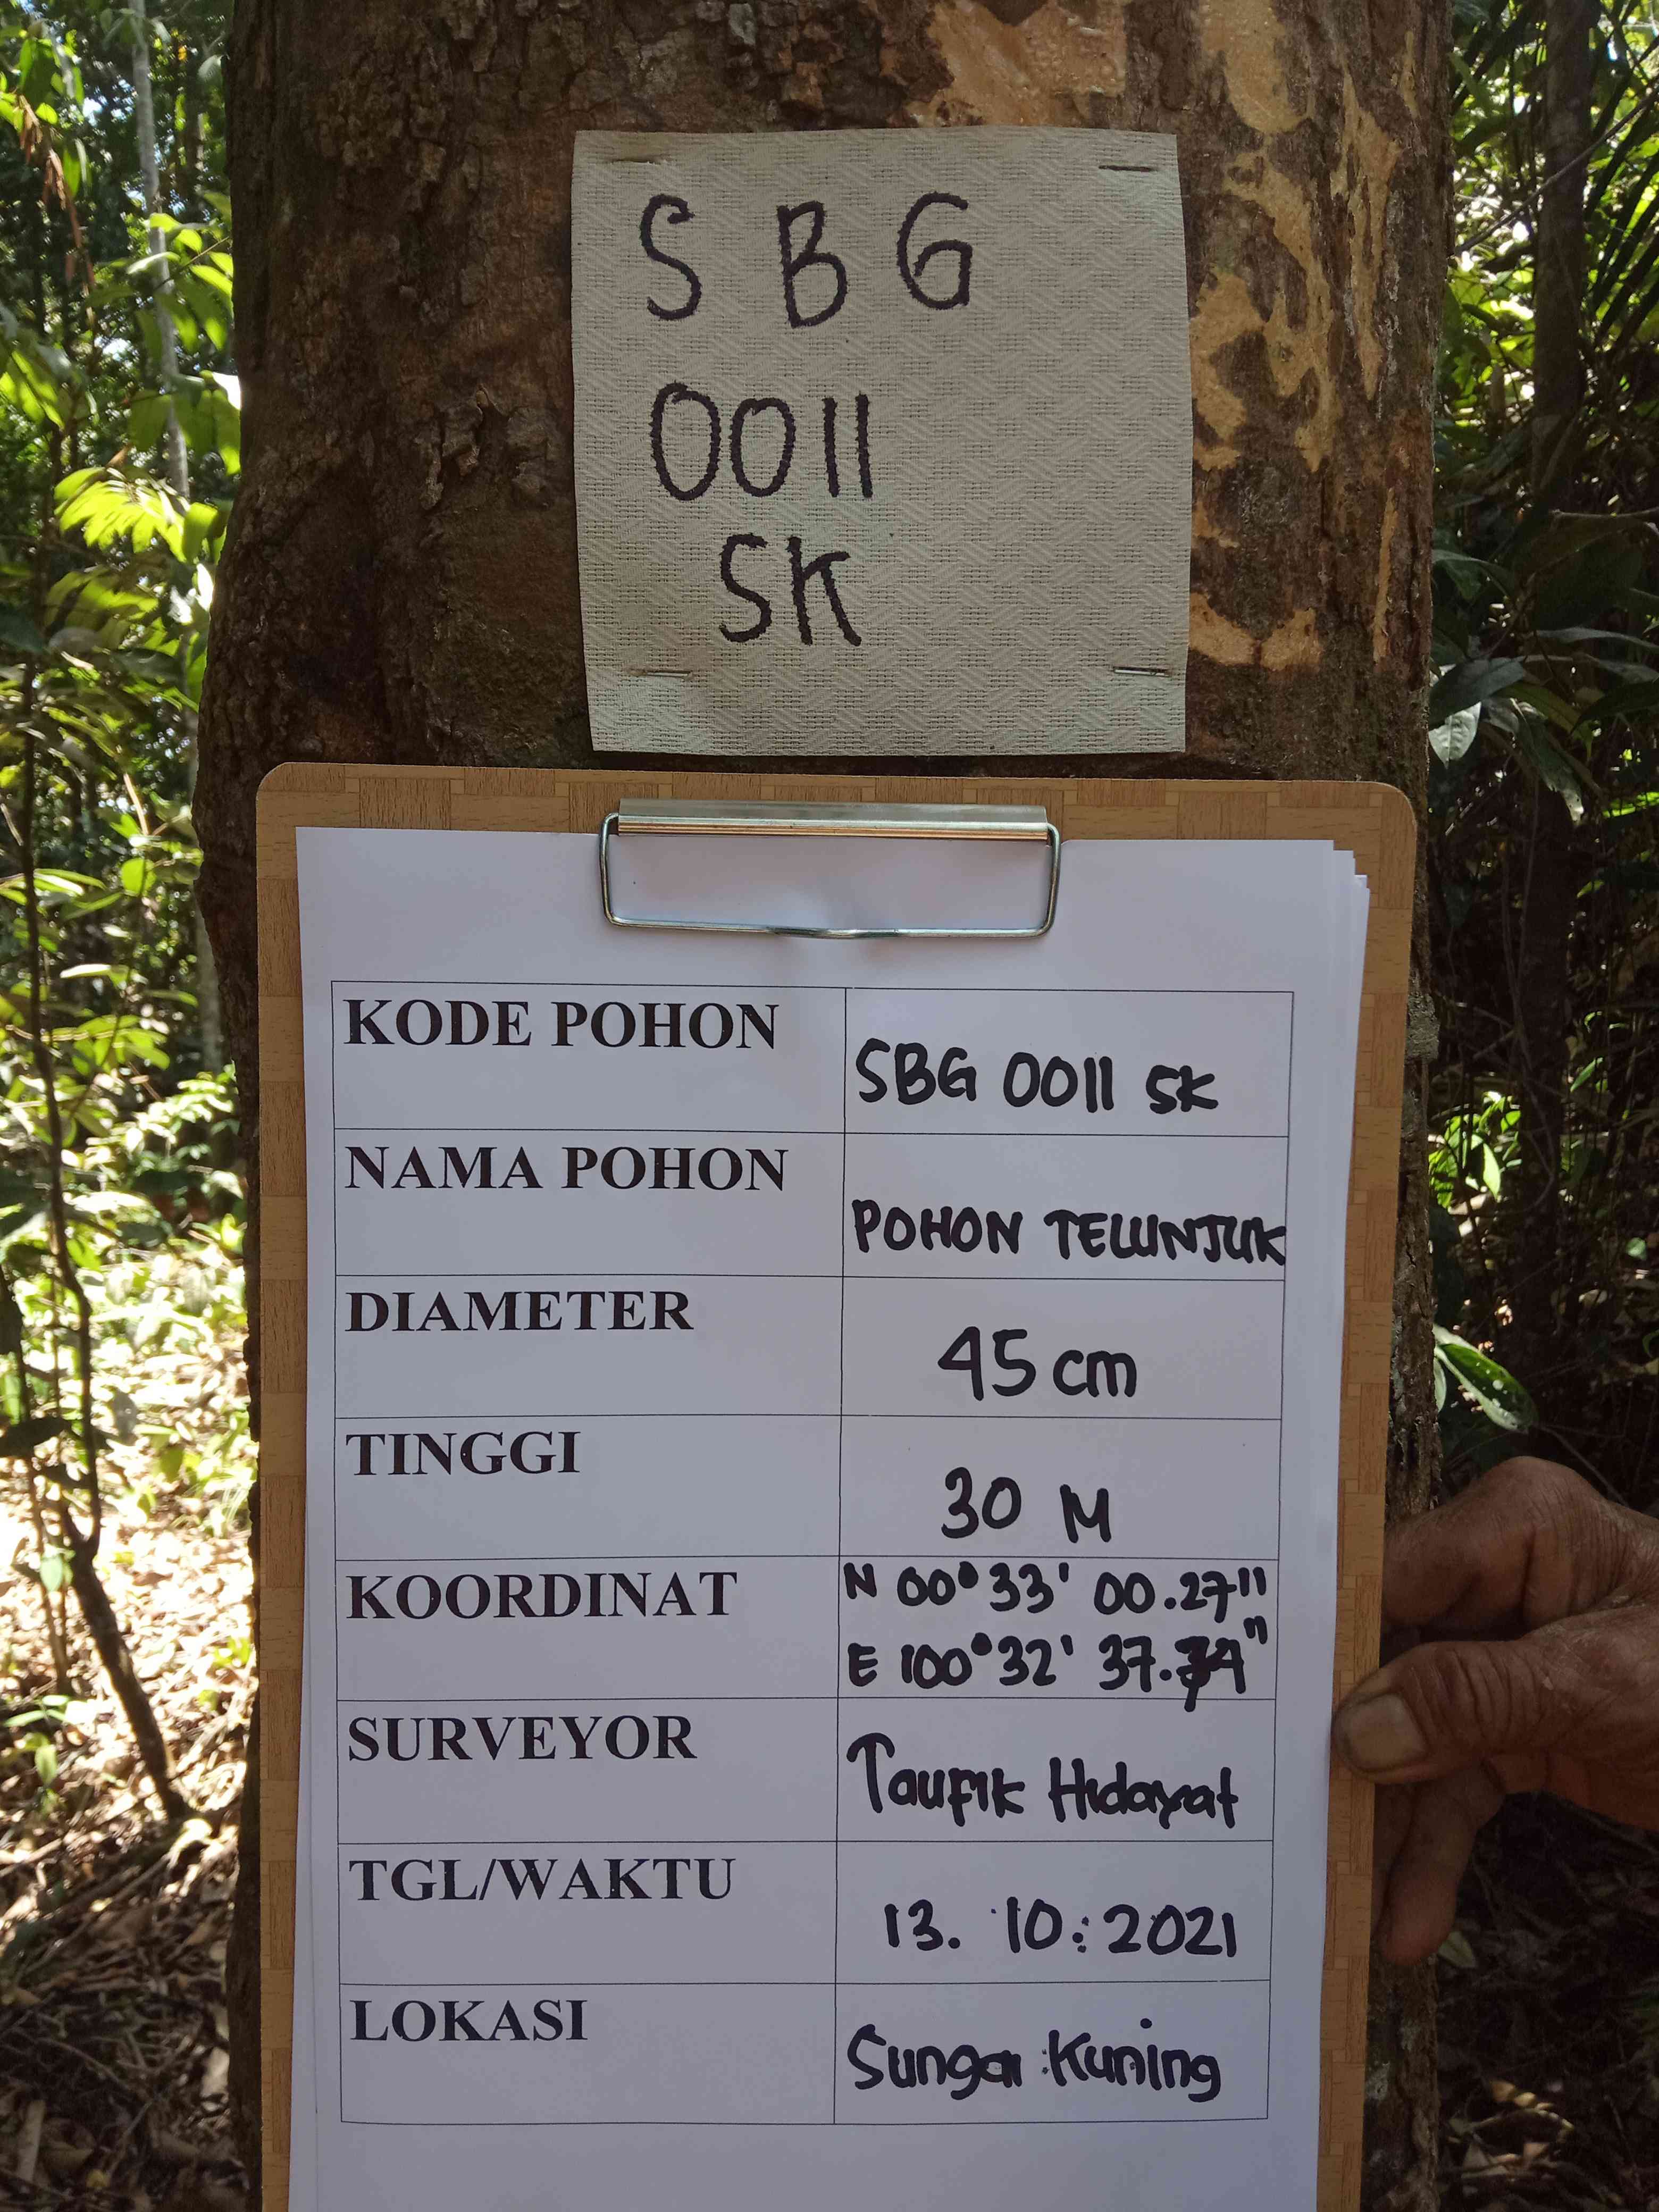 S B G
0011
SK
KODE POHON
SBG 0011 SK
NAMA POHON
POHON TELUNJUK
DIAMETER
45 cm
TINGGI
30 M
KOORDINAT
N 00° 33' 00.27"
E 100° 32' 37.74"
SURVEYOR
Taufik Hidayat
TGL/WAKTU
13. 10: 2021
LOKASI
Sungai Kuning